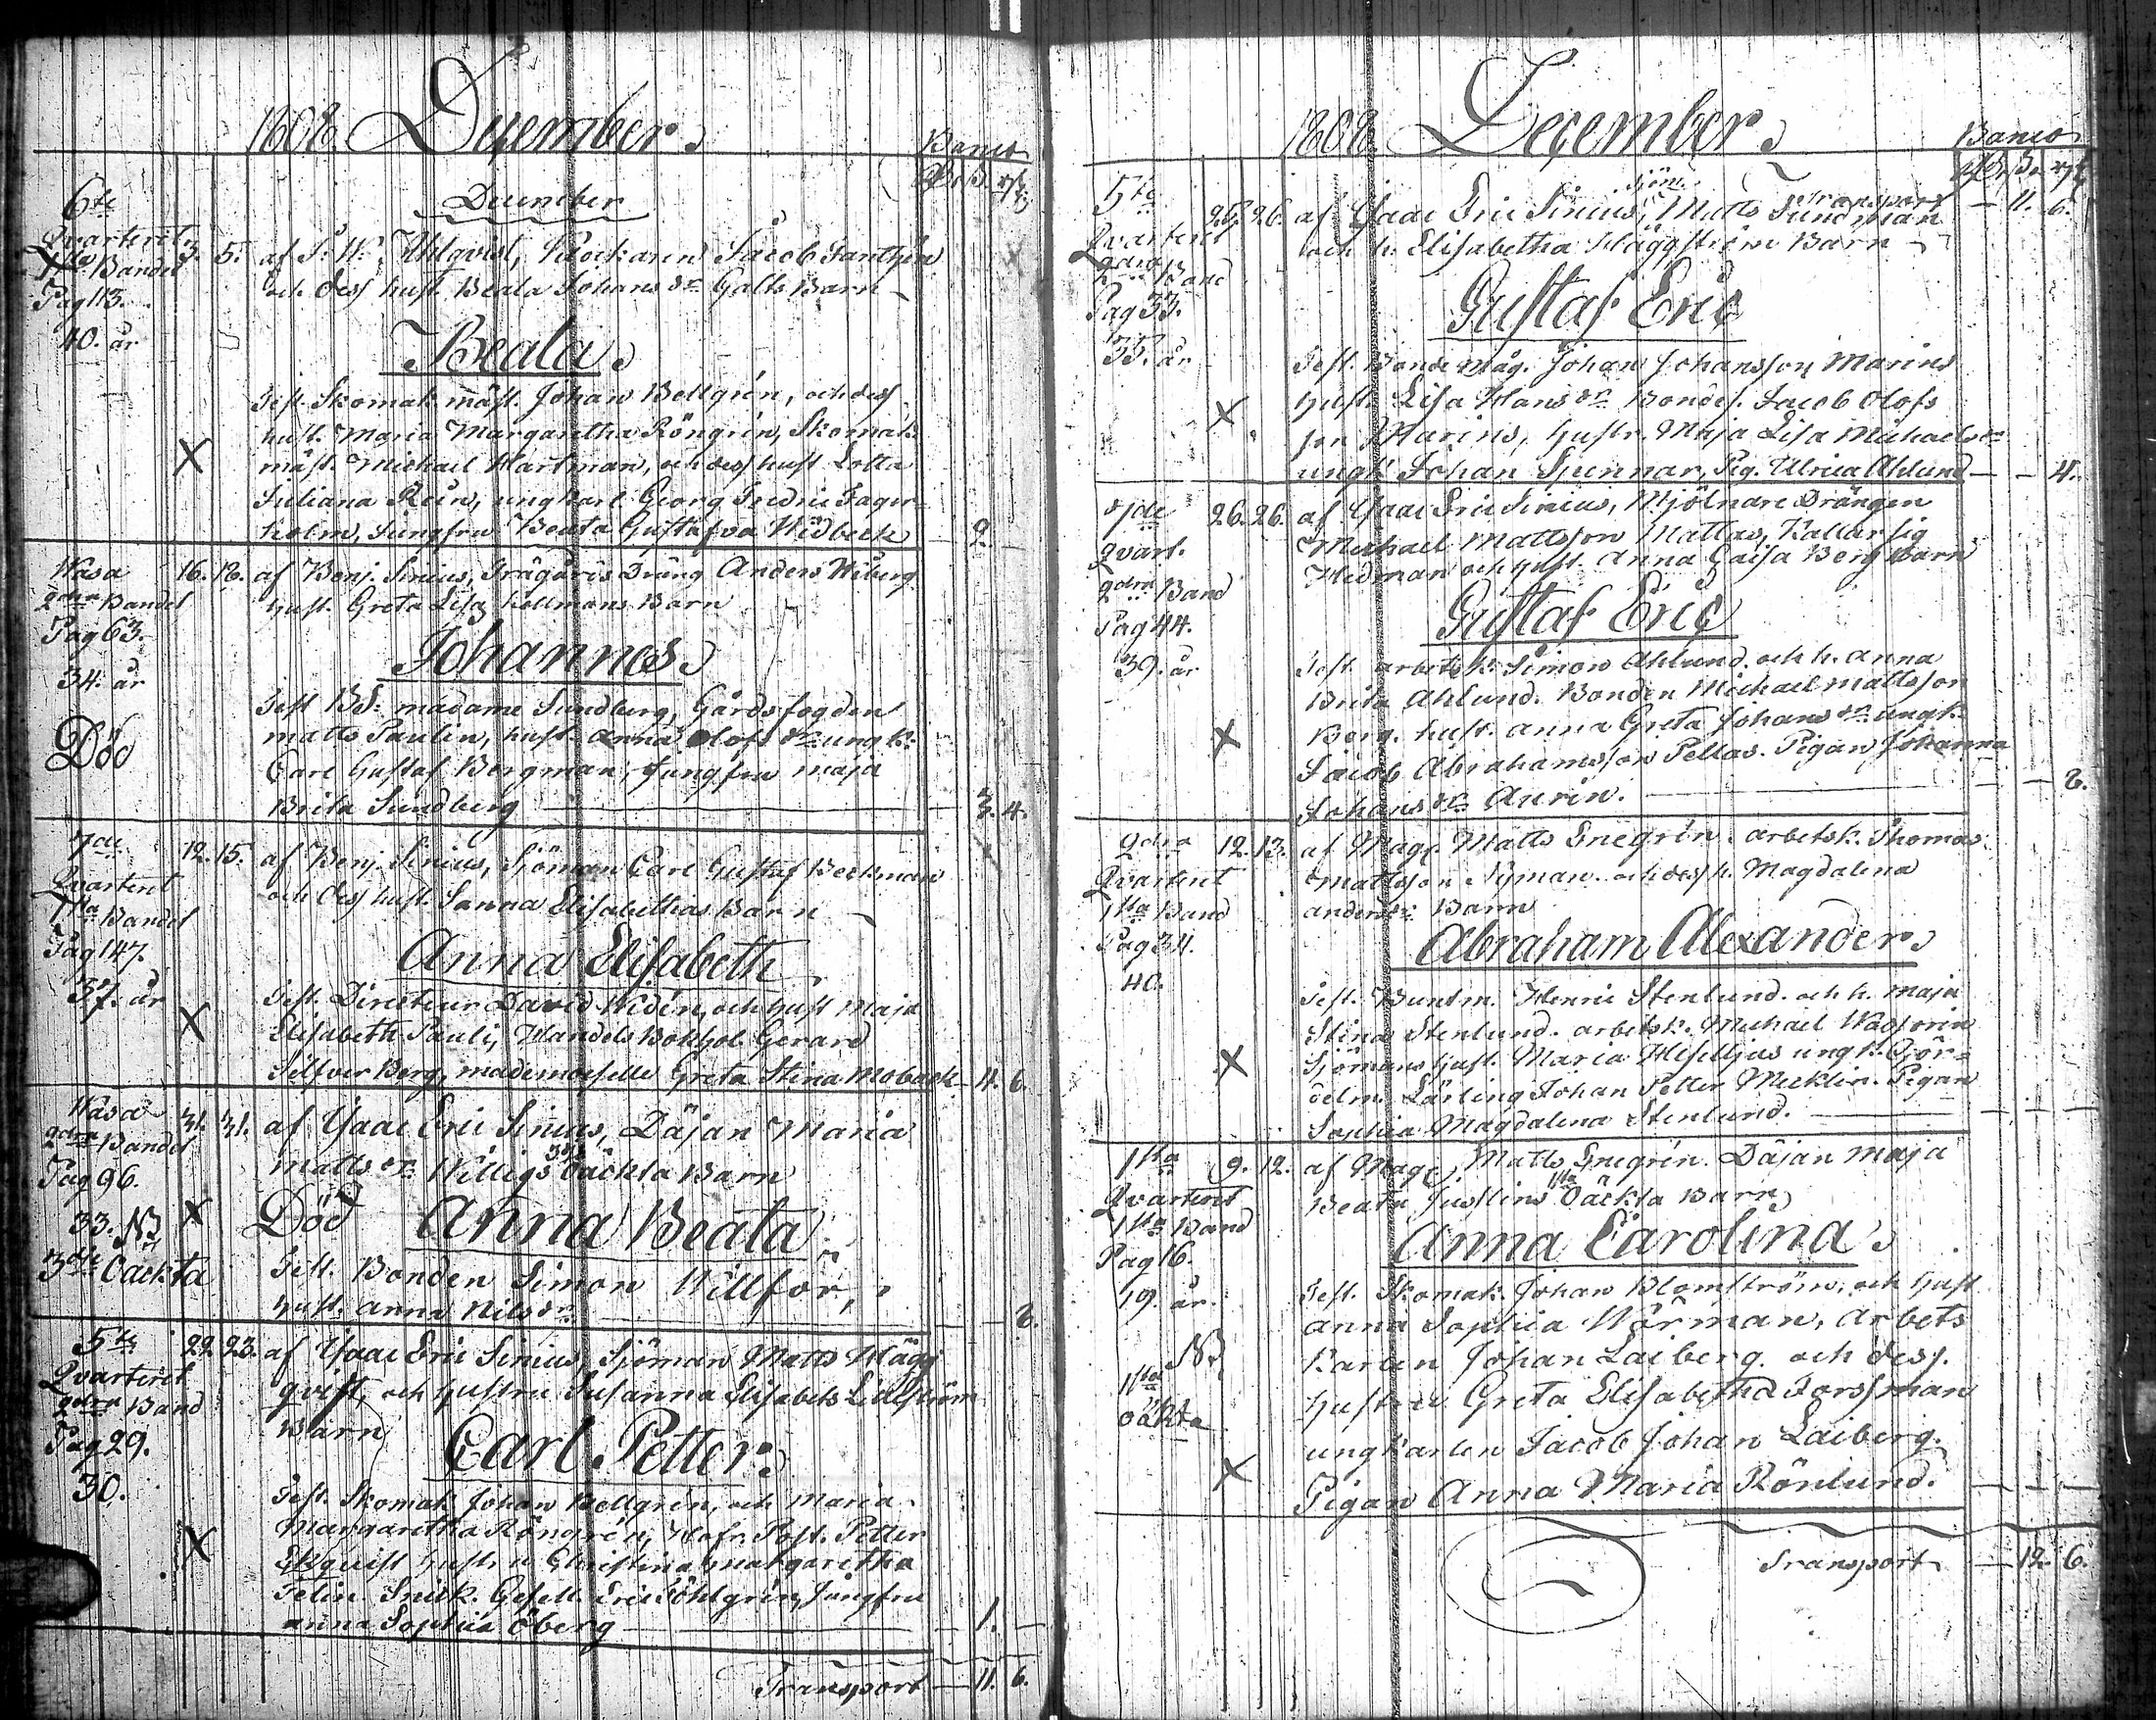 1808 December
Banco
December
6te
Qvarteret
1sta Bandet
Pag 113.
40. år
3. 5. af J. W. Uhlqvist, Klockaren Jacob Fanthén
och dess hust. Beata Johansdr Galts Barn
Beata
Test. Skomak. mäst. Johan Bellgrén, och dess
hust. Maria Margaretha Röngrén, Skomak.
X mäst. Michael Hartman, och dess hust. Lotta
Juliana Rein, ungkarl Georg Fredric Fager-
holm, Jungfru Beata Gustafva Widbeck — 2. —
Wasa
2dra Bandet
Pag 63.
34. år
Död
16. 18. af Benj. Sinius, Trägårds Dräng Anders Wiberg
hust. Greta Lisa Kellmans Barn
Johannes
Test. BS. madame Sundberg, Gårdsfogden
Matts Paulin, hust. Anna Olofsdr ungk.
Carl Gustaf Bergman, Jungfru Maja
Brita Sundberg — 3. 4.
7de
Qvarteret
1sta Bandet
Pag 147.
37. år
12. 15. af Benj. Sinius, Sjöman Carl Gustaf Beckman
och dess hust. Sanna Elisabethas Barn
Anna Elisabeth
Test. Directeur David Widén, och hust Maja
X Elisabeth Pauli, Handels Bokhol. Gerard
Silfver Berg, mademoiselle Greta Stina Moback — 4. 6.
Wasa
2dra Bandet
Pag 96.
33. NB
3die Oäckta
31. 31. af Isaac Eric Sinius, Däjan Maria
Mattsdr Willigs 3die Oäckta Barn
X Död Anna Beata
Test. Bonden Simon Willför,
hust. Anna Nilsdr — 8.
5te
Qvarteret
2dra Band
Pag 29.
30.
22. 23. af Isaac Eric Sinius, Sjöman Matts Hägg
qvist, och hustru Susanna Elisabets Lillström
Barn
Carl Petter
Test. Skomak. Johan Bellgrén, och Maria
Margaretha Röngrén, Hofr. Post. Petter
X Ekqvist hustru Christina Margaretha
Felin. Snick. Gesell. Eric Göhlgrén, Jungfru
Anna Sophia Öberg — 1. —
Transport — 11. 6.
1808 December
Banco
Transport — 11. 6.
5te
Qvarteret
2dra Band
Pag 33.
35. år
25. 26. af Isaac Eric Sinius, Sjöm. Matts Sundman
och h. Elisabetha Häggström Barn
Gustaf Eric
Test. Bonde Måg. Johan Johansson Marins
X hust. Lisa Hansdr Bondes. Jacob Olofs
son Marins, hustr. Maja Lisa Michaelsdr
ungk. Johan Gunnar, Pig. Ulrica Ahlund — 4.
7de
Qvart.
2dra Band
Pag 44.
39. år
26. 26. af Isaac Eric Sinius, Mjölnare Drängen
Michael Mattsson Mattas, Kallar sig
Hedman och hust. Anna Caisa Berg Barn
Gustaf Eric
Test. arbetsk. Simon Ahlund. och h. Anna
Brita Ahlund. Bonden Michael Mattsson
X Berg. hust. Anna Greta Johansdr ungk.
Jacob Abrahamsson Pellas. Pigan Johanna
Johansdr Aurin. — 8.
2dra
Qvarteret
1sta Band
Pag 34.
40.
12. 13. af Mag. Matts Enegrén. arbetsk. Thomas
Mattsson Nyman. och dess h. Magdalena
Andersdr Barn
Abraham Alexander
Test. Buntm. Henric Stenlund. och h. Maja
Stina Stenlund. arbetsk. Michael Wassorin
X Sjömans hust. Maria Hesselljus ungk. Gör=
delm. Lärling Johan Petter Mecklin. Pigan
Sophia Magdalena Stenlund. — — —
1sta
Qvarteret
1sta Band
Pag 16.
19. år.
NB
1sta
oäkta
9. 12. af Mag. Matts Enegrén. Däjan Maja
Beata Justlins 1sta Oäckta Barn
Anna Carolina
Test. Skomak. Johan Blomström, och hust
Anna Sophia Wörman, Arbets
Karlen Johan Laiberg. och dess.
hustru Greta Elisabetha Forssman
ungkarlen Jacob Johan Laiberg.
X Pigan Anna Maria Rönlund. — — —
Transport — 12. 6.